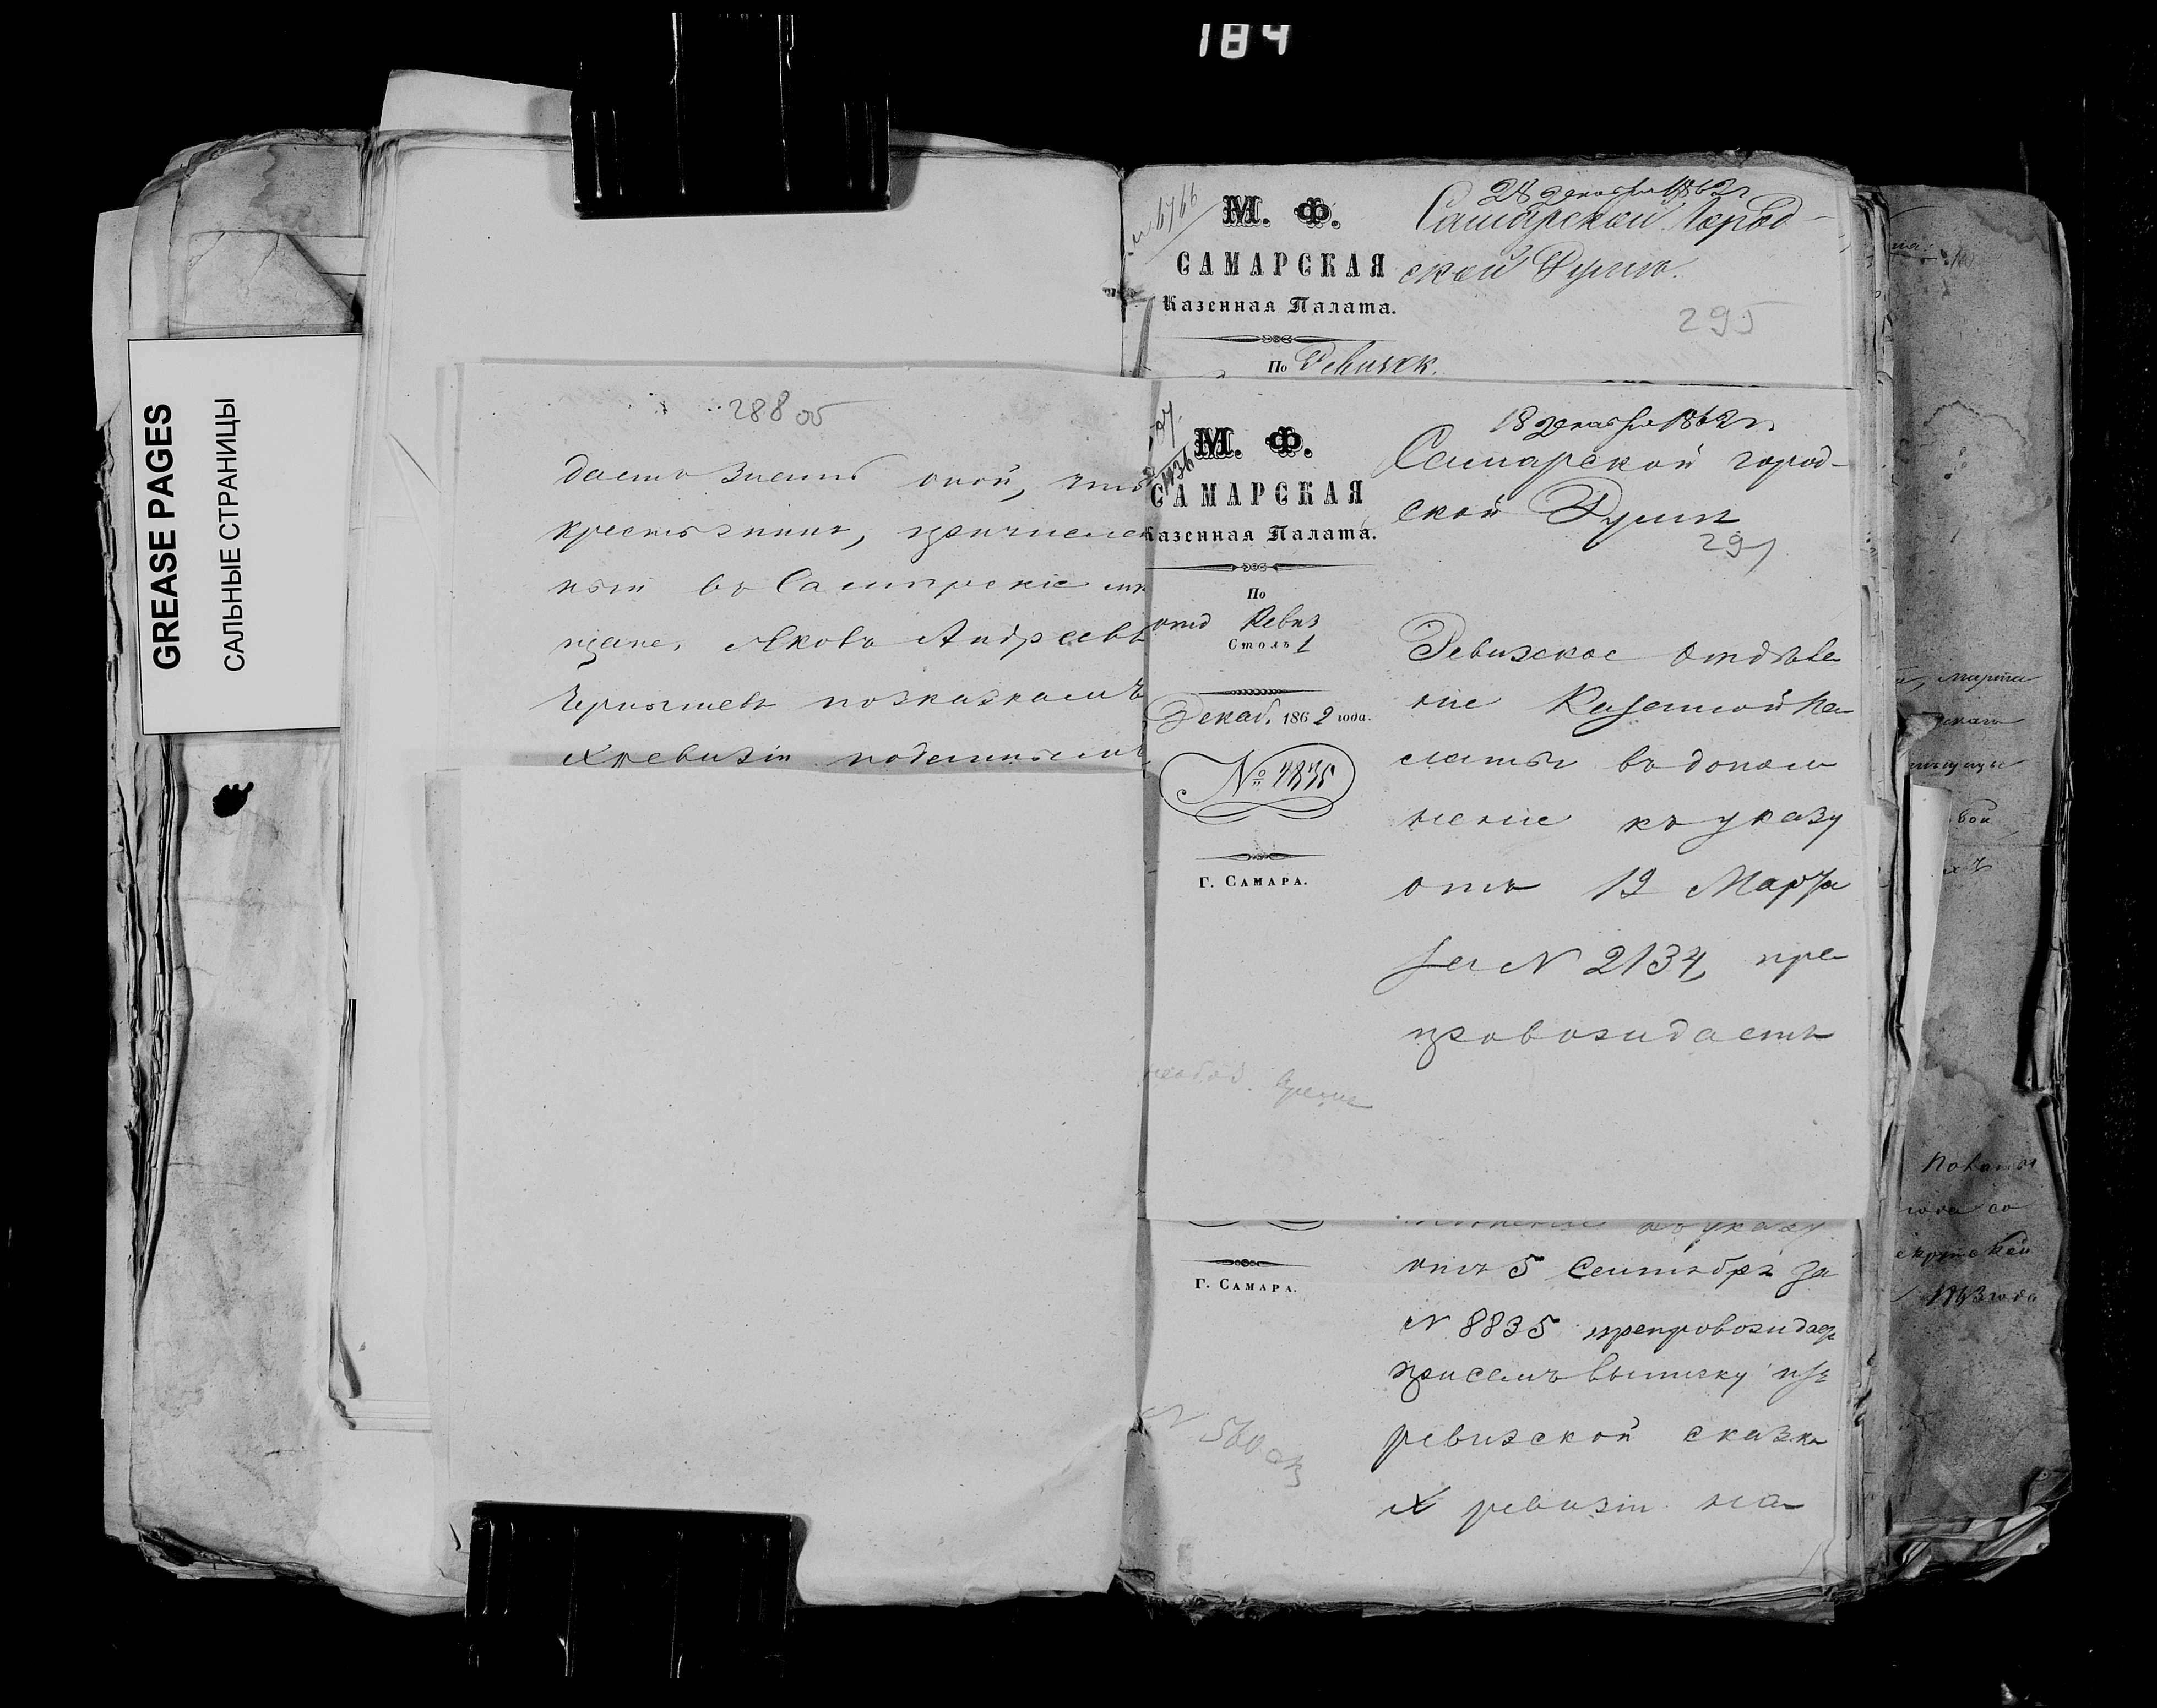 184
GREASE PAGES
САЛЬНЫЕ СТРАНИЦЫ
288 об
даетъ знать оной, что
крестьянинъ, причислен
ный въ Самарскіе мѣ
щане, Яковъ Андреевъ
Чернышевъ показканъ
X ревизіи подлинным
М. Ф.
САМАРСКАЯ
Казенная Палата.
По Ревизск.
28 декабря 1862 г
Самарской Город-
ской Думѣ.
295
М. Ф.
САМАРСКАЯ
Казенная Палата.
По
отд Ревиз
Столъ 1
Декаб. 1862 года.
№
Г. САМАРА.
18 декабря 1862 г.
Самарской город-
ской Думѣ
291
Ревизское Отдѣле
ніе Казенной Па
латы въ допол
неніе къ указу
отъ 19 Марта
за N 2134, пре
провождаетъ
къ указу
отъ 5 Сентября за
N 8835 препровождаетъ
при семъ выписку изъ
ревизской сказки
X ревизіи на
Г. САМАРА.
N 560
марта
1863 года